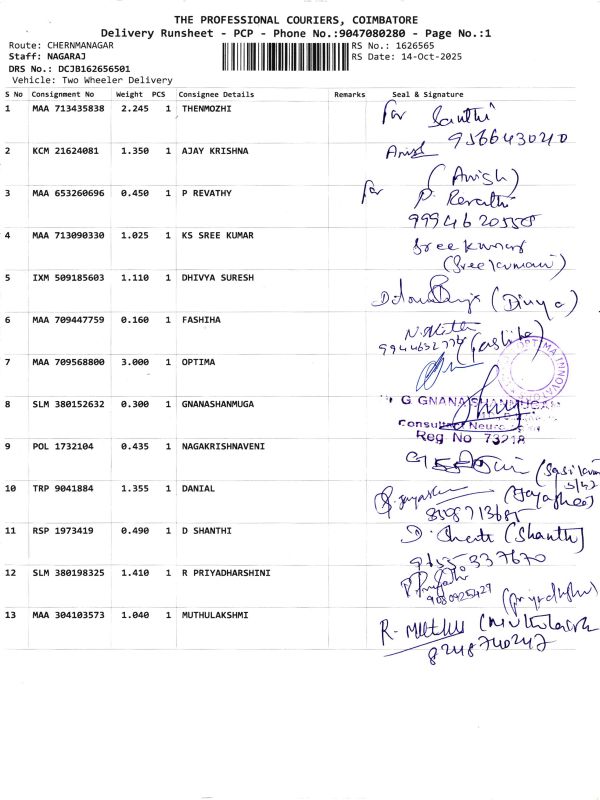 THE PROFESSIONAL COURIERS, COIMBATORE
Delivery Runsheet - PCP - Phone No.:9047080280 - Page No.:1
Route: CHERNMANAGAR
Staff: NAGARAJ
DRS No.: DCJB162656501
Vehicle: Two Wheeler Delivery
RS No.: 1626565
RS Date: 14-Oct-2025
S No Consignment No Weight PCS Consignee Details Remarks Seal & Signature
1 MAA 713435838 2.245 1 THENMOZHI
For Santhi
9566430210
2 KCM 21624081 1.350 1 AJAY KRISHNA
Anish
(Anish)
3 MAA 653260696 0.450 1 P REVATHY
for P. Revathi
9994620550
4 MAA 713090330 1.025 1 KS SREE KUMAR
Sree kumar
(Sree kumar)
5 IXM 509185603 1.110 1 DHIVYA SURESH
(Divya)
6 MAA 709447759 0.160 1 FASHIHA
9944652776
7 MAA 709568800 3.000 1 OPTIMA
OPTIMA INNOVA
8 SLM 380152632 0.300 1 GNANASHANMUGA
G GNANA SHANMUGA
Consultant Neuro
Reg No 73218
9 POL 1732104 0.435 1 NAGAKRISHNAVENI
10 TRP 9041884 1.355 1 DANIAL
11 RSP 1973419 0.490 1 D SHANTHI
(Shanthi)
9655337670
12 SLM 380198325 1.410 1 R PRIYADHARSHINI
9080925429
13 MAA 304103573 1.040 1 MUTHULAKSHMI
R. Muthu
8248740247